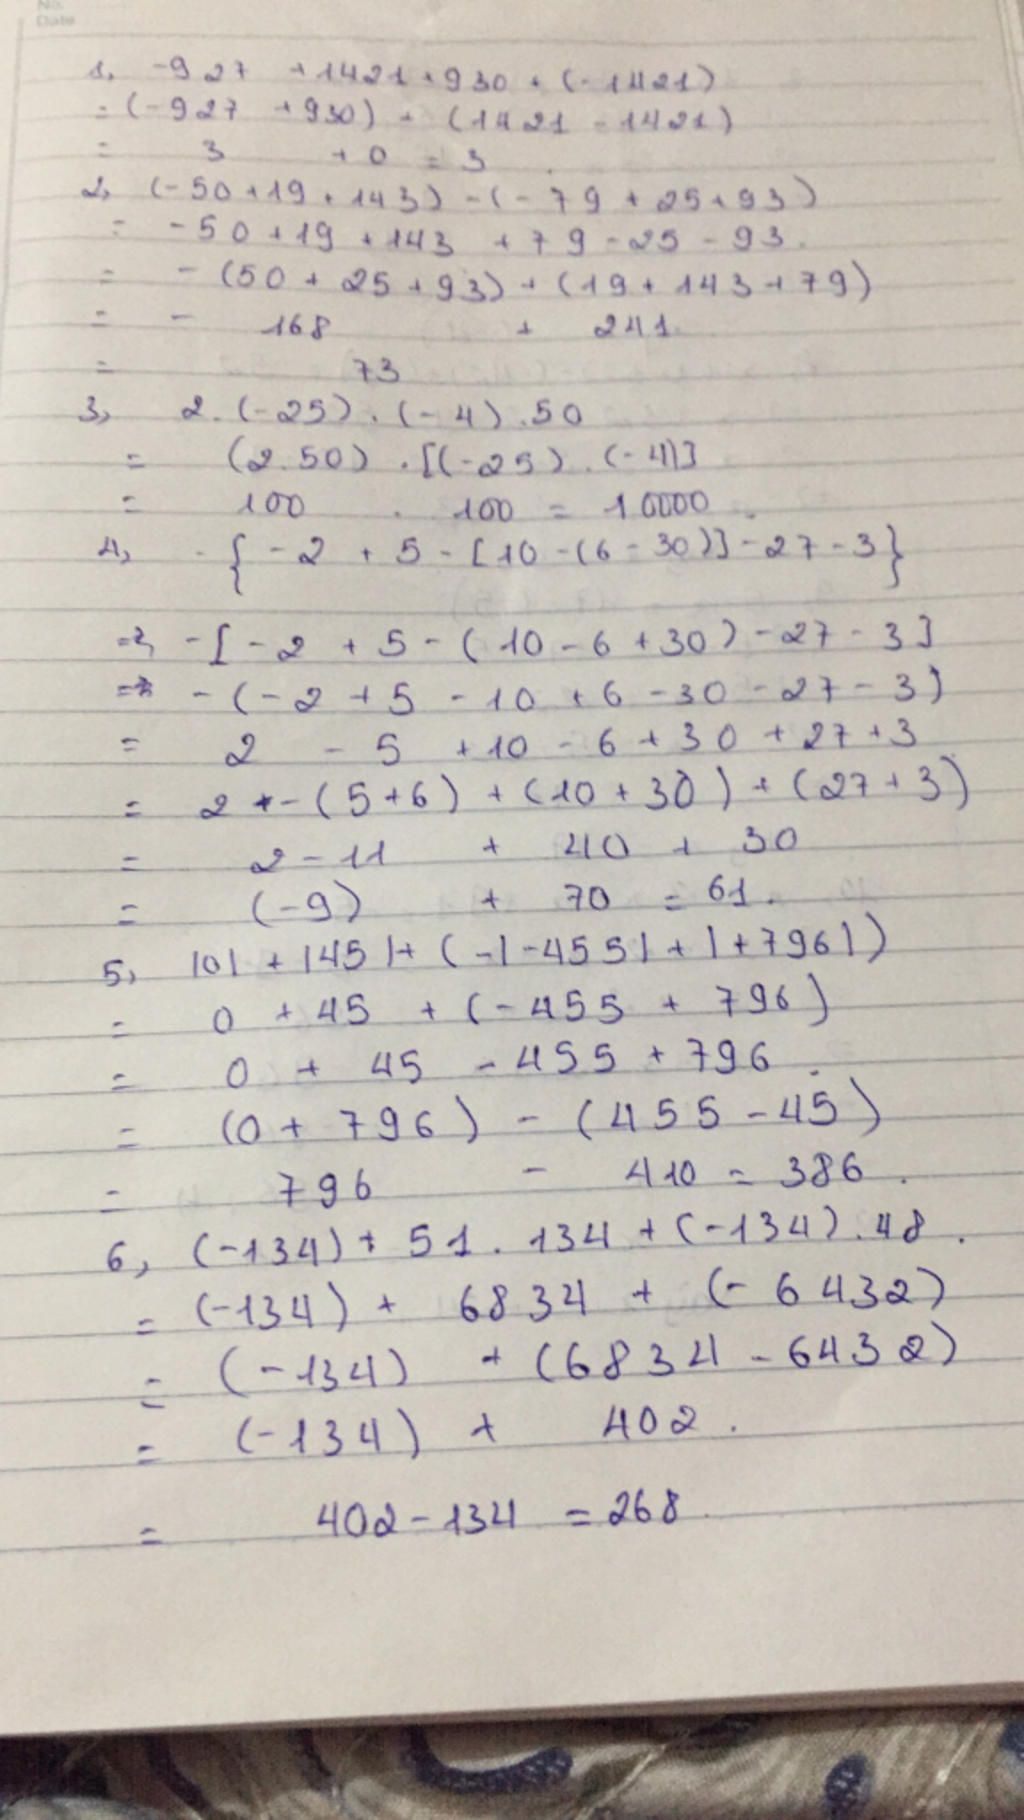 No.
Date
1, -927 + 1421 + 930 + (-1421)
= (-927 + 930) + (1421 - 1421)
= 3 + 0 = 3.
2, (-50 + 19 + 143) - (-79 + 25 + 93)
= -50 + 19 + 143 + 79 - 25 - 93.
= - (50 + 25 + 93) + (19 + 143 + 79)
= - 168 + 241.
= 73
3, 2. (-25) . (-4) . 50
= (2. 50) . [(-25) . (-4)]
= 100 . 100 = 10000.
4, - { -2 + 5 - [10 - (6 - 30)] - 27 - 3}
=> - [ -2 + 5 - (10 - 6 + 30) - 27 - 3]
=> - ( -2 + 5 - 10 + 6 - 30 - 27 - 3)
= 2 - 5 + 10 - 6 + 30 + 27 + 3
= 2 + - (5 + 6) + (10 + 30) + (27 + 3)
= 2 - 11 + 40 + 30
= (-9) + 70 = 61.
5, |0| + |45| + (-|-455| + |+796|)
= 0 + 45 + (-455 + 796)
= 0 + 45 - 455 + 796.
= (0 + 796) - (455 - 45)
= 796 - 410 = 386.
6, (-134) + 51. 134 + (-134) . 48.
= (-134) + 6834 + (-6432)
= (-134) + (6834 - 6432)
= (-134) + 402.
= 402 - 134 = 268.